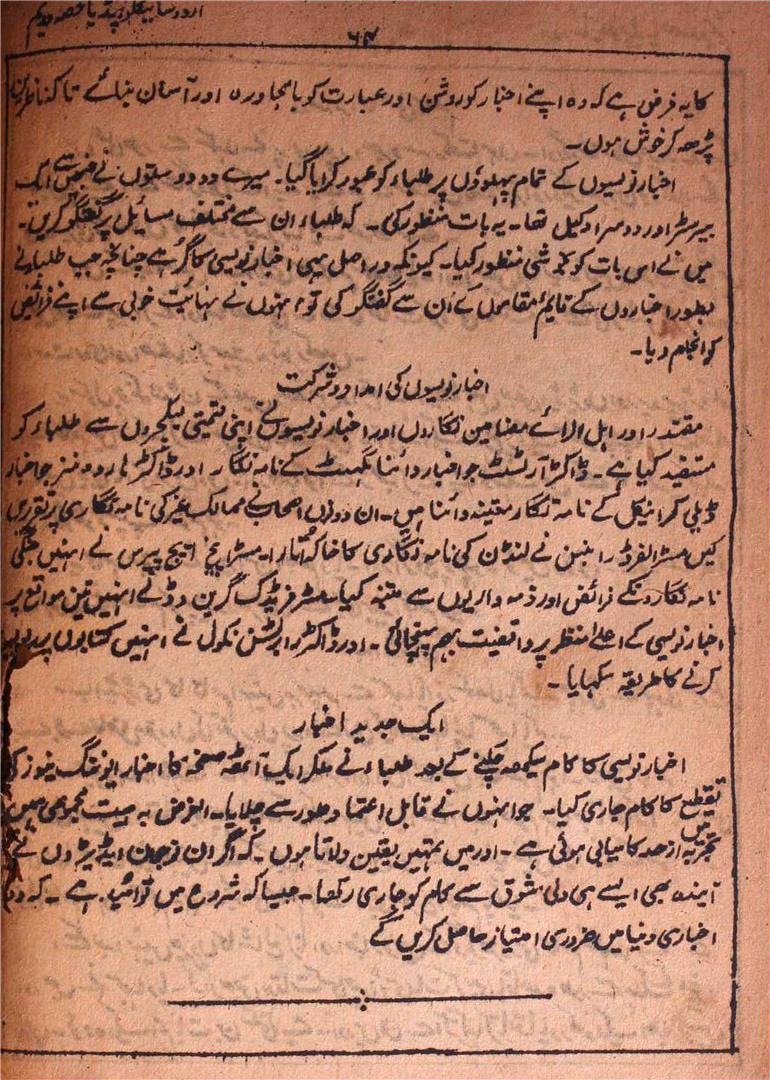 اردو سائیکلوپیڈیا حصہ دویم
۶۴
کا یہ فرض ہے کہ وہ اپنے اخبار کو روشن اور عبارت کو بامحاورہ اور آسان بنائے تاکہ ناظرین
پڑھ کر خوش ہوں۔
اخبار نویسوں کے تمام پہلوؤں پر طلباء کو عبور کرایا گیا۔ میرے دو دوستوں نے جس سے ایک
بیرسٹر اور دوسرا وکیل تھا۔ یہ بات منظور کی۔ کہ طلباء ان سے مختلف مسائیل پر گفتگو کریں۔
میں نے اس بات کو بخوشی منظور کیا۔ کیونکہ دراصل یہی اخبار نویسی کا گُر ہے چنانچہ جب طلبا نے
بطور اخباروں کے قایم مقاموں کے اُن سے گفتگو کی تو انہوں نے نہایت خوبی سے اپنے فرائض
کو انجام دیا۔
اخبار نویسوں کی امداد و شرکت
مقتدر اور اہل الرائے مضامین نگاروں اور اخبار نویسوں نے اپنی قیمتی لیکچروں سے طلباء کو
مستفید کیا ہے۔ ڈاکٹر آرنسٹ جو اخبار دائنا کے نامہ نگار اور ڈاکٹر ہاردونز جو اخبار
ڈیلی کرانیکل کے نامہ نگار متعینہ دائنا ہیں۔ ان دونوں اصحاب نے ممالک غیر کی نامہ نگاری پر تقریریں
کیں مسٹر الفرڈ رابنسن نے لنڈن کی نامہ نگاری کا خاکہ اُتارا۔ مسٹر ایچ پیرس نے انہیں جنگی
نامہ نگارونکے فرائض اور ذمہ داریوں سے متنبہ کیا۔ مسٹر فریڈرک گرین وڈ نے انہیں تین مواقع پر
اخبار نویسی کے اعلےٰ منظر پر واقفیت بہم پہنچائی۔ اور ڈاکٹر رابرٹسن نکول نے انہیں کتابوں پر ریویو
کرنے کا طریقہ سکہایا۔
ایک جدید اخبار
اخبار نویسی کا کام سیکھ چکنے کے بعد طلباء نے ملکر ایک آٹھ صفحہ کا اخبار ایوننگ نیوز کی
تقطیع کا کام جاری کیا۔ جو انہوں نے قابل اعتماد طور سے چلایا۔ الغرض بہ ہیت مجموعی ہمیں اس
تجربہ میں ازحد کامیابی ہوئی ہے۔ اور میں تمہیں یقین دلاتا ہوں۔ کہ اگر ان نوجوان ایڈیٹروں نے
آیندہ بھی ایسے ہی دلی شوق سے کام کو جاری رکھا۔ جیسا کہ شروع میں تو امید ہے۔ کہ وہ
اخباری دنیا میں ضروری امتیاز حاصل کریں گے